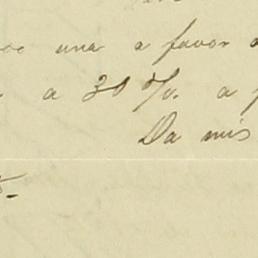 una a favor
a 30 %. a
Da mis